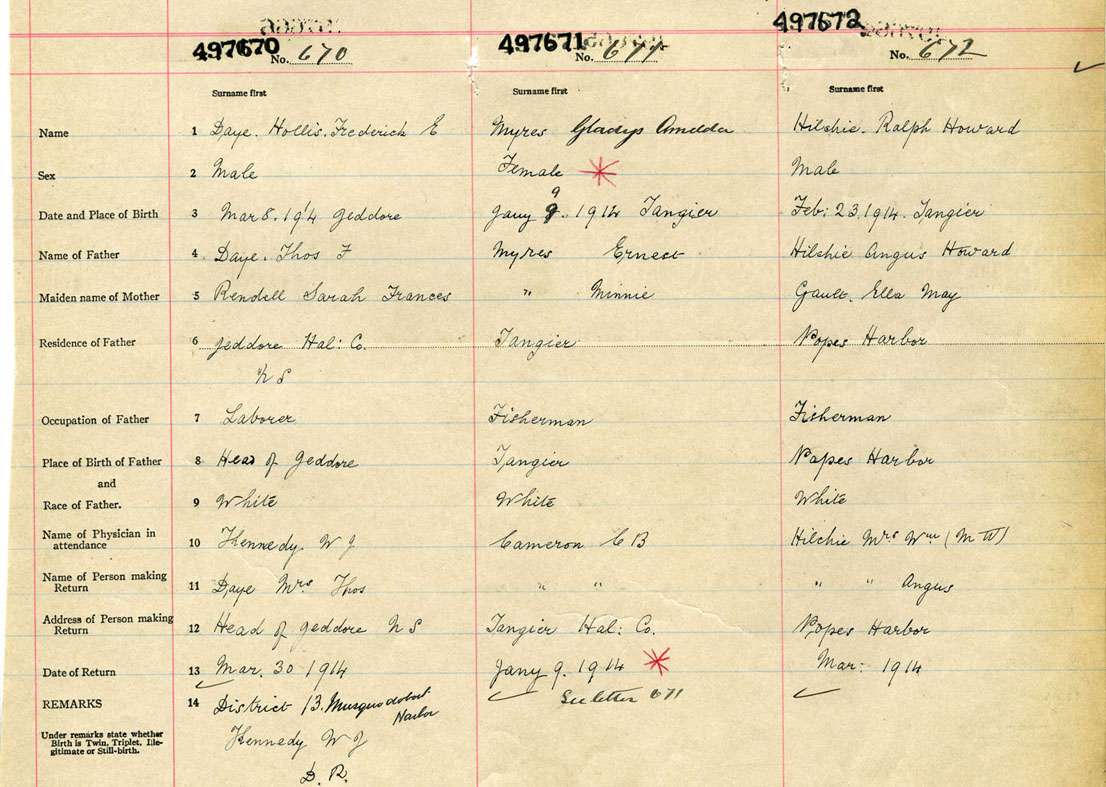 497670
497671
497672
No. 670
No. 671
No. 672
Surname first
Surname first
Surname first
Name 1 Daye. Hollis. Frederick E Myres Gladys Hilchie. Ralph Howard
Sex 2 Male Female Male
9
Date and Place of Birth 3 Mar 8. 1914 Jeddore Jany 9. 1914 Tangier Feb: 23. 1914. Tangier
Name of Father 4 Daye. Thos F Myres Ernest Hilchie Angus Howard
Maiden name of Mother 5 Rendell Sarah Frances " Minnie Gault. Ella May
Residence of Father 6 Jeddore Hal: Co. Tangier Popes Harbor
N S
Occupation of Father 7 Laborer Fisherman Fisherman
Place of Birth of Father 8 Head of Jeddore Tangier Popes Harbor
and
Race of Father. 9 White White White
Name of Physician in
attendance 10 Kennedy W J Cameron C B Hilchie Mrs Wm (M W)
Name of Person making
Return 11 Daye Mrs Thos " " " " Angus
Address of Person making
Return 12 Head of Jeddore N S Tangier Hal: Co. Popes Harbor
Date of Return 13 Mar. 30 1914 Jany 9. 1914 Mar: 1914
REMARKS 14 District 13. Musquodoboit See letter 671
Harbor
Under remarks state whether
Birth is Twin, Triplet, Ille-
gitimate or Still-birth.
Kennedy W J
D. R.